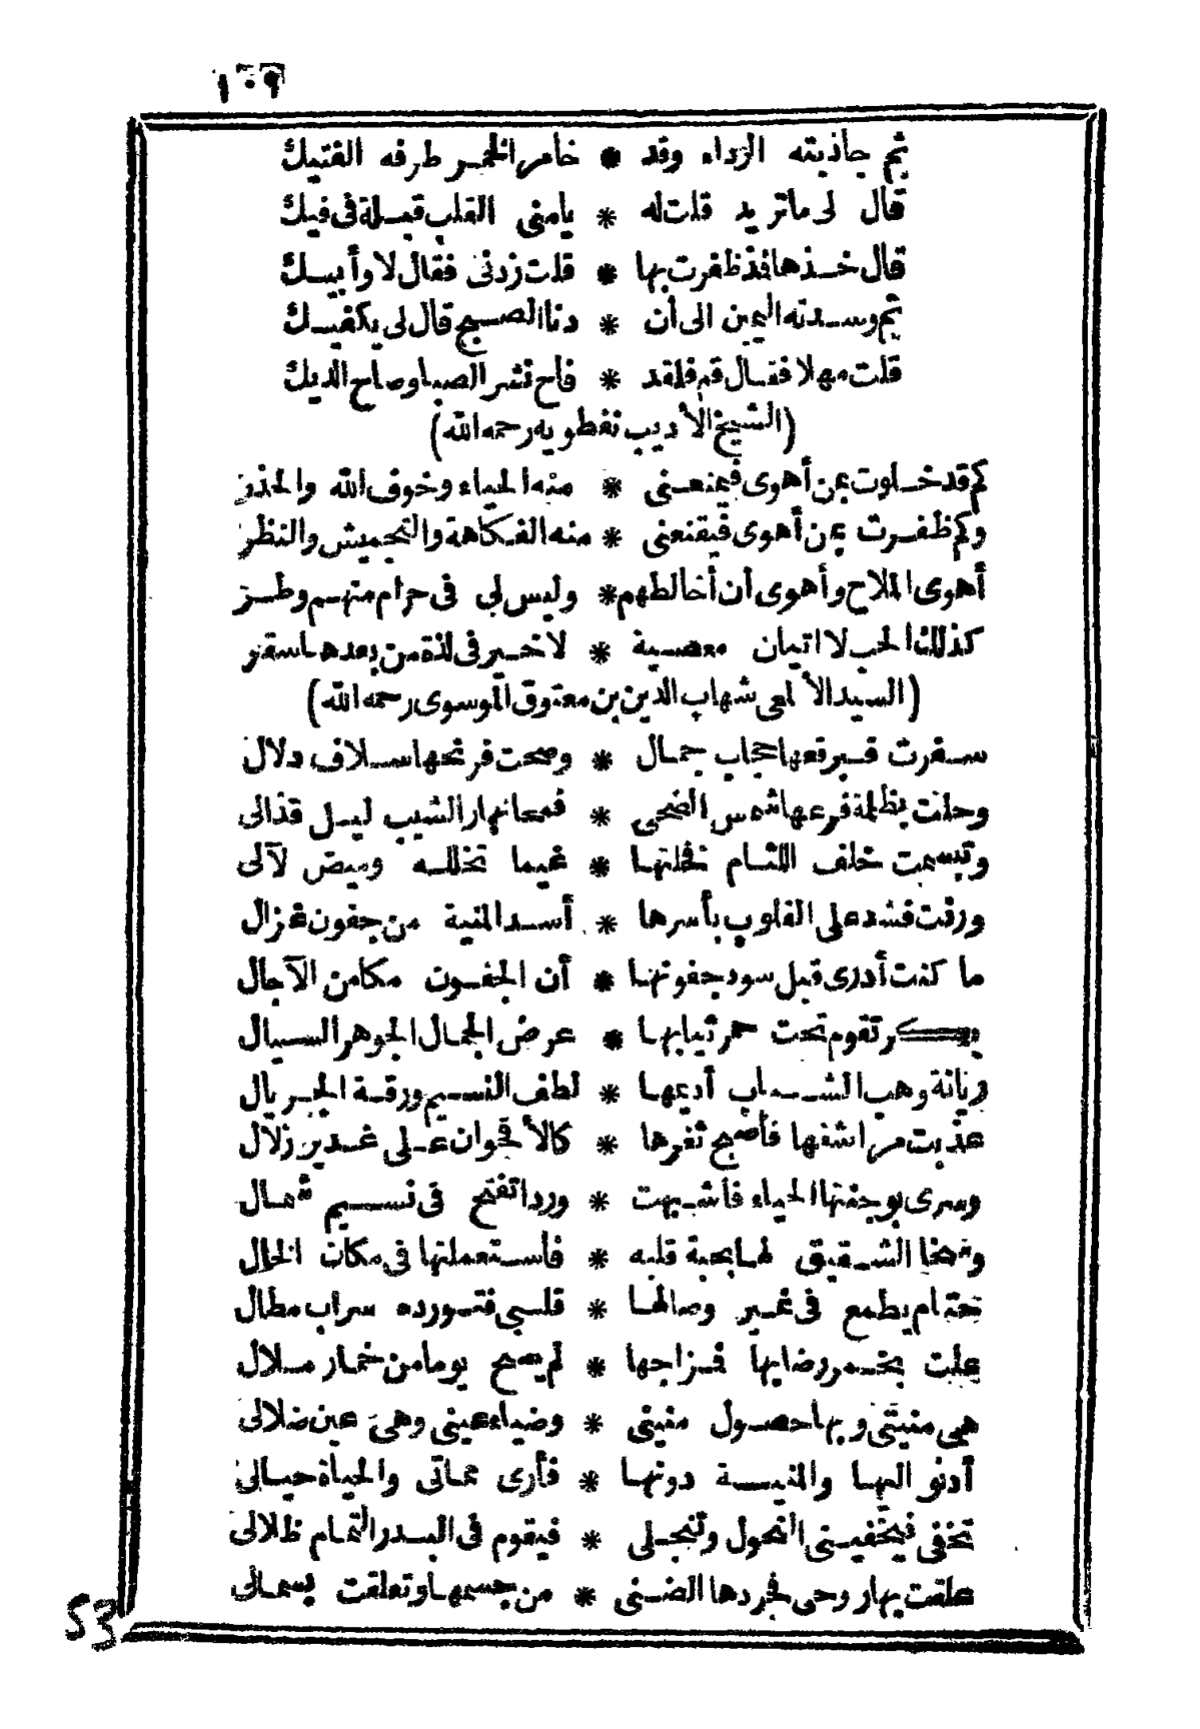 ١٠٩
ثم جاذبته الرداء وقد * خامر الخمر طرفه الفتيك
قال لى ماتريد قلت له * يامنى القلب قبلة فى فيك
قال خذها فذ ظفرت بها * قلت زدنى فقال لا وأبيك
ثم وسدته اليمين الى أن * دنا الصبح قال لى يكفيك
قلت مهلا فقال قم فلقد * فاح نشر الصبا وصاح الديك
(الشيخ الأديب نفطويه رحمه الله)
كم قد خلوت بمن أهوى فيمنعنى * منه الحياء وخوف الله والحذر
وكم ظفرت بمن أهوى فيقنعنى * منه الفكاهة والتجميش والنظر
أهوى الملاح وأهوى أن أخالطهم * وليس لى فى حرام منهم وطر
كذلك الحب لا اتيان معصية * لا خير فى لذة من بعدها سقر
(السيد الألمعى شهاب الدين بن معتوق الموسوى رحمه الله)
سفرت فبرقعها حجاب جمال * وصحت فرنحها سلاف دلال
وجلت بظلمة فرعها شمس الضحى * فمحا نهار الشيب ليل قذالى
وتبسمت خلف اللثام فخلتها * غيما تخلله وميض لآلى
ورنت فشد على القلوب بأسرها * أسد المنية من جفون غزال
ما كنت أدرى قبل سود جفونها * أن الجفون مكامن الآجال
بكر تقوم تحت حمر ثيابها * عرض الجمال الجوهر السيال
ريانة وهب الشباب أديمها * لطف النسيم ورقة الجريال
عذبت مراشفها فأصبح ثغرها * كالأقحوان على غدير زلال
وسرى بوجنتها الحياء فأشبهت * وردا تفتح فى نسيم شمال
وسخا الشقيق لها بحبة قلبه * فاستعملتها فى مكان الخال
حتام يطمع فى نمير وصالها * قلبى فتورده سراب مطال
علت بخمر رضابها فمزاجها * لم يصح يوما من خمار ملال
هى منيتى وبها حصول منيتى * وضياء عينى وهى عين ضلالى
أدنو اليها والمنية دونها * فأرى مماتى والحياة حيالى
تخفى فيخفينى النحول وتنجلى * فيقوم فى البدر التمام ظلالى
علقت بها روحى فجردها الضنى * من جسمها وتعلقت بسمالى
53